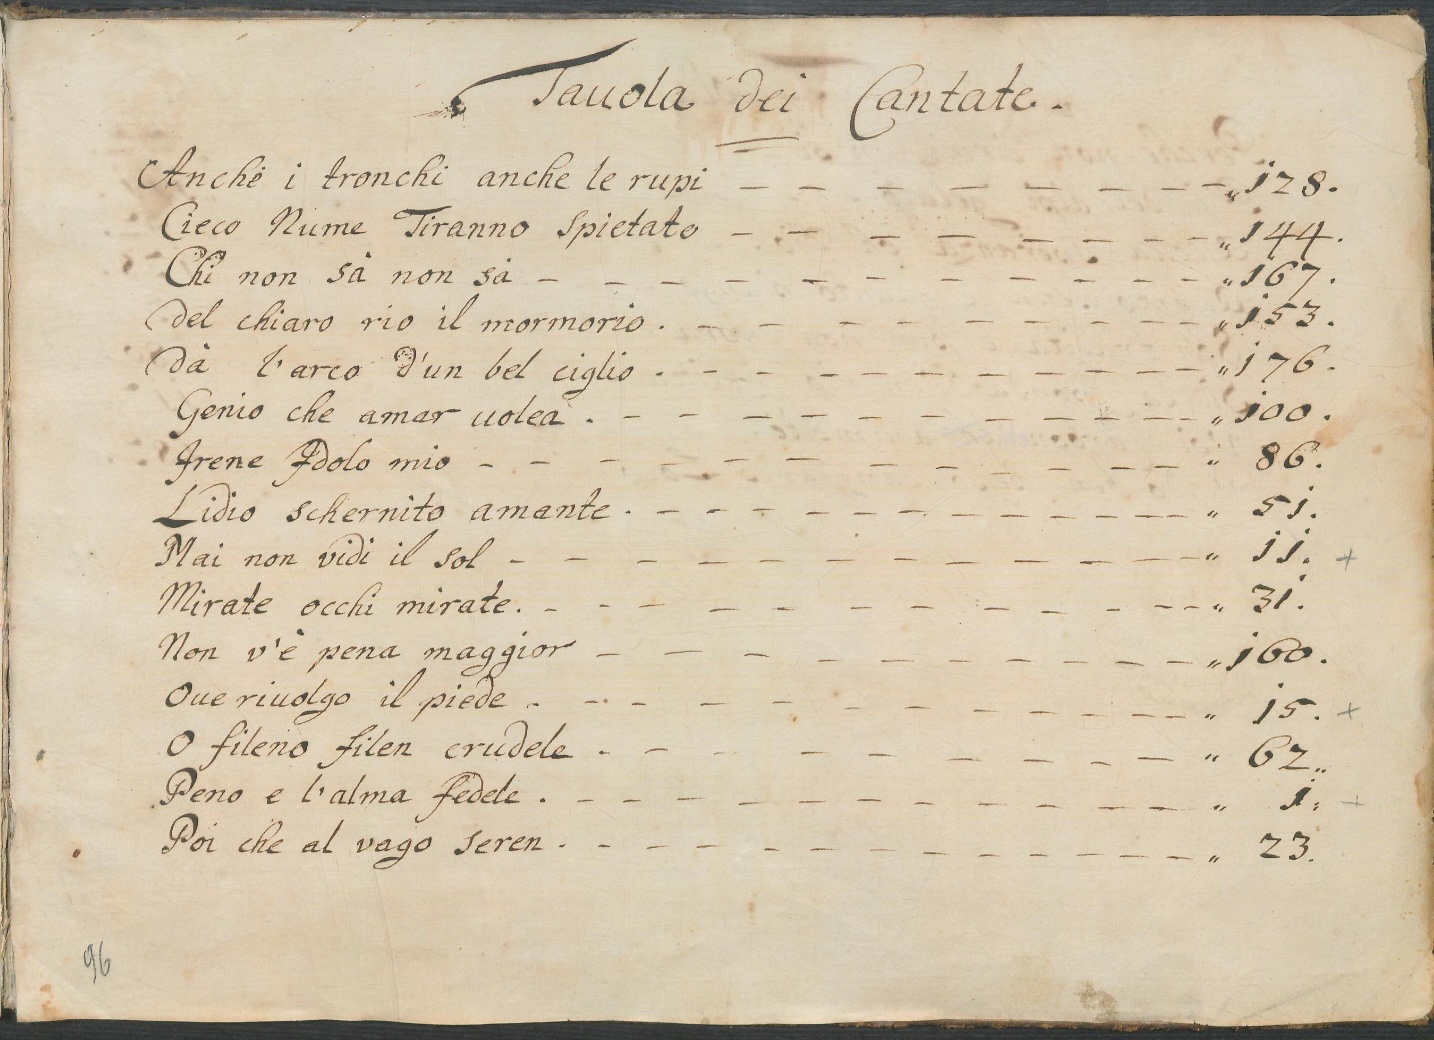 Tauola dei Cantate.
Anche i tronchi anche le rupi — — — — — — — — „ 128.
Cieco Nume Tiranno spietato — — — — — — — — „ 144.
Chi non sà non sà — — — — — — — — „ 167.
del chiaro rio il mormorio . — — — — — — — — „ 153.
dà l'arco d'un bel ciglio . — — — — — — — — „ 176.
Genio che amar uolea . — — — — — — — — „ 100.
Irene Idolo mio — — — — — — — — „ 86.
Lidio schernito amante . — — — — — — — — „ 51.
Mai non vidi il sol — — — — — — — — „ 11. +
Mirate occhi mirate. — — — — — — — — „ 31.
Non v'è pena maggior — — — — — — — — „ 160.
Oue riuolgo il piede . — — — — — — — — „ 15. +
O fileno filen crudele . — — — — — — — — „ 62„
Peno e l'alma fedele . — — — — — — — — „ 1. +
Poi che al vago seren . — — — — — — — — „ 23.
96